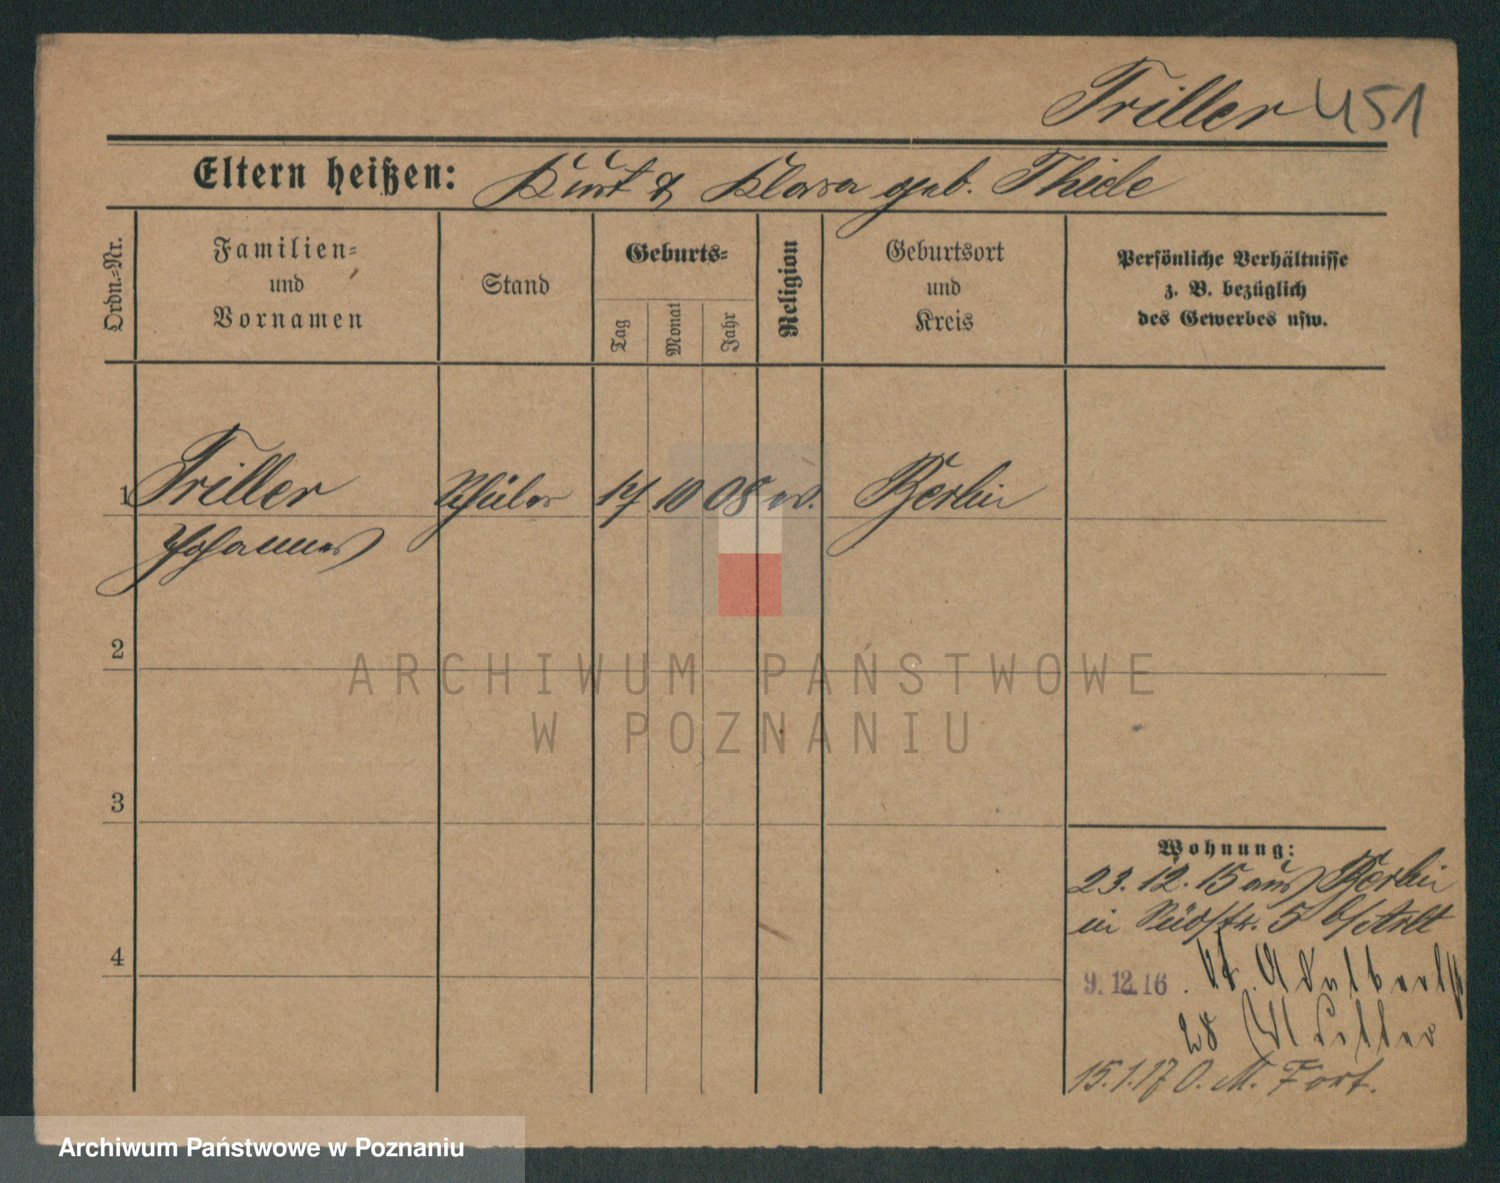 Triller 451
Eltern heißen: Kurt & Klara geb. Thiele
Ordn.-Nr.
Familien-
und
Vornamen
Stand
Geburts-
Tag
Monat
Jahr
Religion
Geburtsort
und
Kreis
Persönliche Verhältnisse
z. B. bezüglich
des Gewerbes usw.
1 Triller Schüler 17 10 08 ev. Berlin
Johannes
2
3
4
Wohnung:
23.12.15 aus Berlin
in Südstr. 5 b/Arlt
9.12.16. St. Adalbertst
28
15.1.17 O. M. Fort.
ARCHIWUM PAŃSTWOWE
W POZNANIU
Archiwum Państwowe w Poznaniu